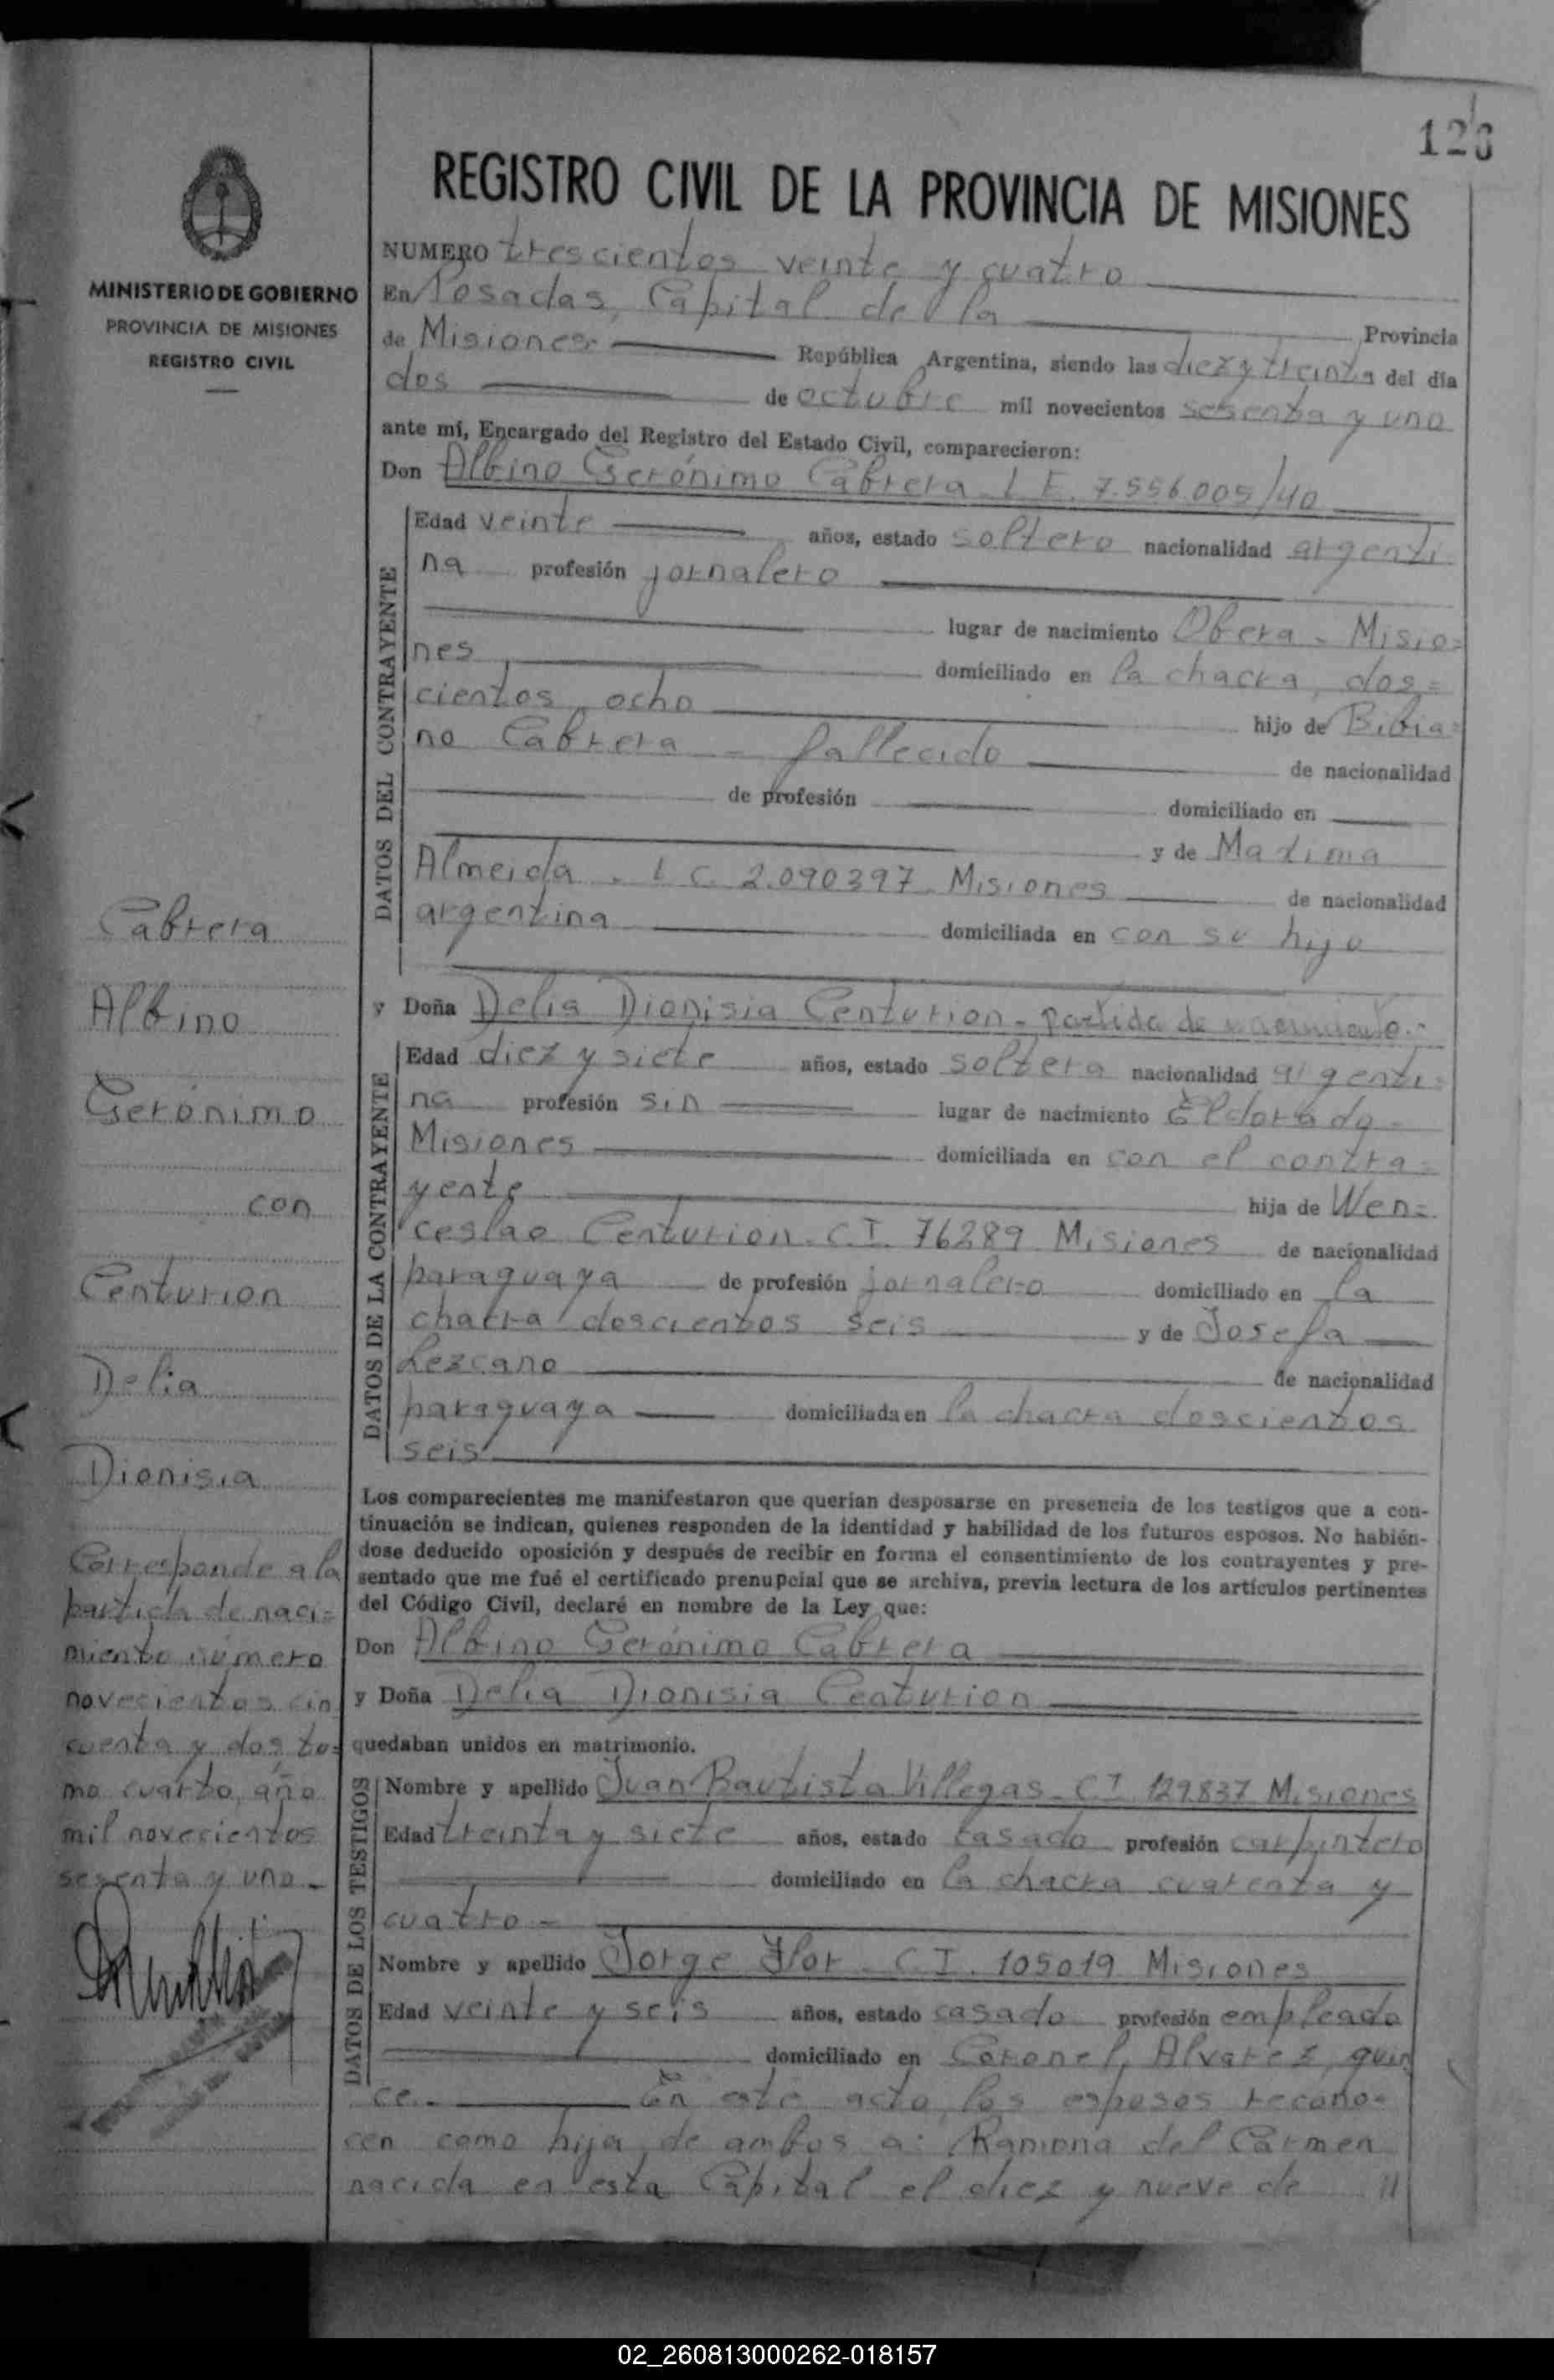 126
REGISTRO CIVIL DE LA PROVINCIA DE MISIONES
MINISTERIO DE GOBIERNO
PROVINCIA DE MISIONES
REGISTRO CIVIL
NUMERO trescientos veinte y cuatro
En Posadas, Capital de la Provincia
de Misiones República Argentina, siendo las diez y treinta del día
dos de octubre mil novecientos sesenta y uno
ante mí, Encargado del Registro del Estado Civil, comparecieron:
Don Albino Gerónimo Cabrera L E. 7.556.005/40
DATOS DEL CONTRAYENTE
Edad veinte años, estado soltero nacionalidad argenti
na profesión jornalero
lugar de nacimiento Obera - Misio=
nes domiciliado en la chacra, dos=
cientos ocho hijo de Bibia=
no Cabrera - fallecido de nacionalidad
de profesión domiciliado en
y de Maxima
Almeida - L C. 2.090397 - Misiones de nacionalidad
argentina domiciliada en con su hijo
y Doña Delia Dionisia Centurion - partida de nacimiento.-
DATOS DE LA CONTRAYENTE
Edad diez y siete años, estado soltera nacionalidad argenti=
na profesión sin lugar de nacimiento Eldorado -
Misiones domiciliada en con el contra=
yente hija de Wen=
ceslao Centurion - C.I. 76289 - Misiones de nacionalidad
paraguaya de profesión jornalero domiciliado en la
chacra doscientos seis y de Josefa
Lezcano de nacionalidad
paraguaya domiciliada en la chacra doscientos
seis
Los comparecientes me manifestaron que querían desposarse en presencia de los testigos que a con-
tinuación se indican, quienes responden de la identidad y habilidad de los futuros esposos. No habién-
dose deducido oposición y después de recibir en forma el consentimiento de los contrayentes y pre-
sentado que me fué el certificado prenupcial que se archiva, previa lectura de los artículos pertinentes
del Código Civil, declaré en nombre de la Ley que:
Don Albino Gerónimo Cabrera
y Doña Delia Dionisia Centurion
quedaban unidos en matrimonio.
DATOS DE LOS TESTIGOS
Nombre y apellido Juan Bautista Villegas - C I 129.837 Misiones
Edad treinta y siete años, estado casado profesión carpintero
domiciliado en la chacra cuarenta y
cuatro -
Nombre y apellido Jorge Flor - C I. 105019 Misiones
Edad veinte y seis años, estado casado profesión empleado
domiciliado en Coronel Alvarez, quin
ce.- En este acto los esposos recono=
cen como hija de ambos a: Ramona del Carmen
nacida en esta Capital el diez y nueve de //
Cabrera
Albino
Gerónimo
con
Centurion
Delia
Dionisia
Corresponde a la
partida de naci=
miento número
novecientos cin
cuenta y dos, to=
mo cuarto, año
mil novecientos
sesenta y uno -
02_260813000262-018157